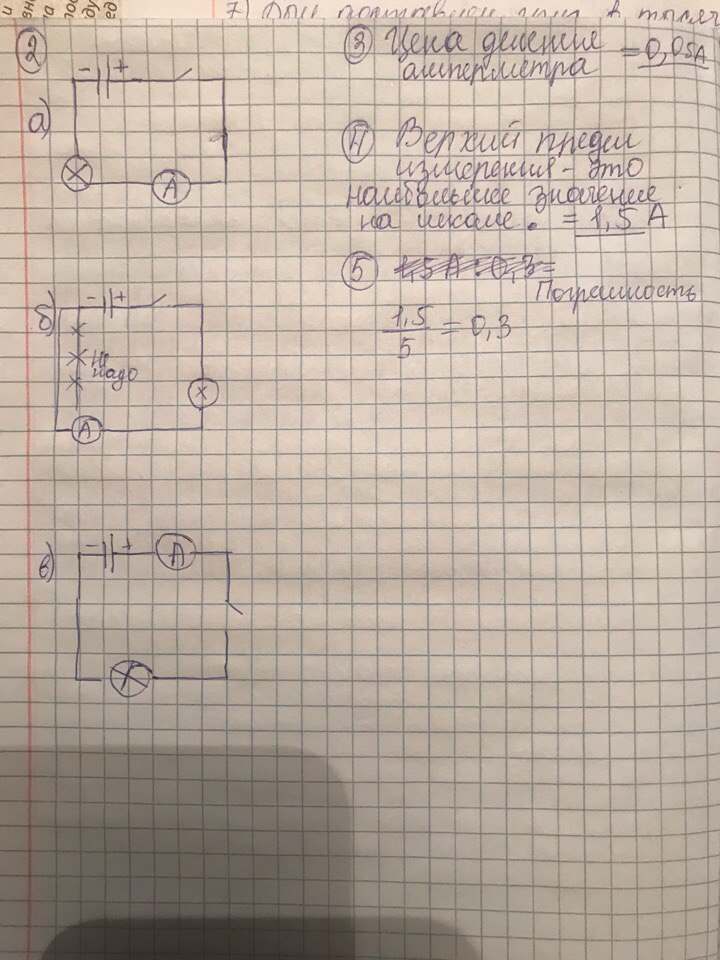 7) Для
2
а)
- +
X
А
б)
- +
Не
надо
X
А
в)
- +
А
X
3 Цена деления
амперметра = 0,05А
4 Верхний предел
измерения - это
наибольшее значение
на шкале. = 1,5 А
5 1,5 А : 0,3 =
Погрешность
1,5
5
= 0,3